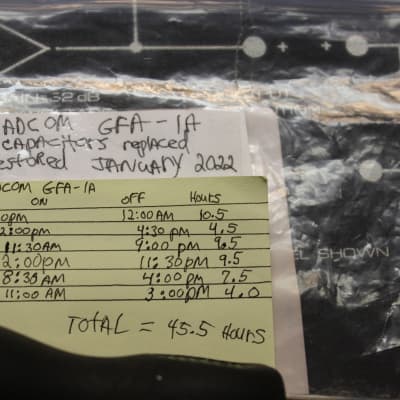 32 dB
ADCOM GFA-1A
CAPACITORS replaced
RESTORED JANUARY 2022
ADCOM GFA-1A
ON OFF Hours
12:00AM 10.5
2:00pm 4:30pm 4.5
11:30AM 9:00pm 9.5
2:00pm 11:30pm 9.5
8:30AM 4:00pm 7.5
11:00AM 3:00pm 4.0
SHOWN
TOTAL = 45.5 Hours